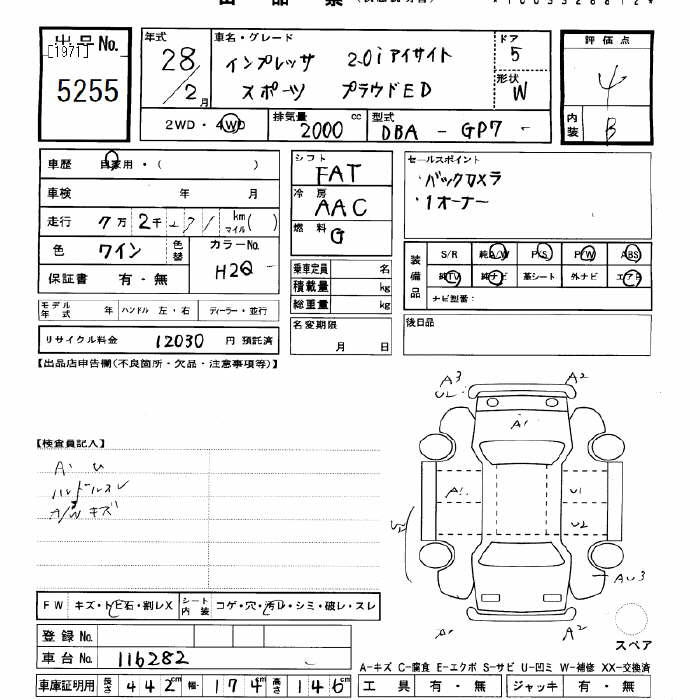 出品票
出品No.
[1971]
5255
年式
28/2月
車名・グレード
インプレッサ 2.0iアイサイト
スポーツ プラウドED
ドア
5
形状
W
評価点
4
内装
B
2WD・4WD
排気量
2000 cc
型式
DBA - GP7 -
車歴 自家用・( )
車検 年 月
走行 7万2千271 km マイル( )
色 ワイン 色替
カラーNo.
H2Q
保証書 有・無
シフト
FAT
冷房
AAC
燃料
G
乗車定員 名
積載量 kg
総重量 kg
セールスポイント
・バックカメラ
・1オーナー
装備品
S/R 純A/W P/S P/W ABS
純TV 純ナビ 革シート 外ナビ エアB
ナビ型番:
モデル年式 年 ハンドル 左・右 ディーラー・並行
リサイクル料金 12030 円 預託済
名変期限
月 日
後日品
【出品店申告欄(不良箇所・欠品・注意事項等)】
A3
U2
A2
A1
【検査員記入】
A・U
ハンドルスレ
A/W キズ
A1
U1
U2
U2
AU3
A1
A2
スペア
FW キズ・トビ石・割レX
シート内装 コゲ・穴・汚レ・シミ・破レ・スレ
登録No.
車台No. 116282
車庫証明用 長さ 442cm 幅 174cm 高さ 146cm
A-キズ C-腐食 E-エクボ S-サビ U-凹ミ W-補修 XX-交換済
工具 有・無 ジャッキ 有・無